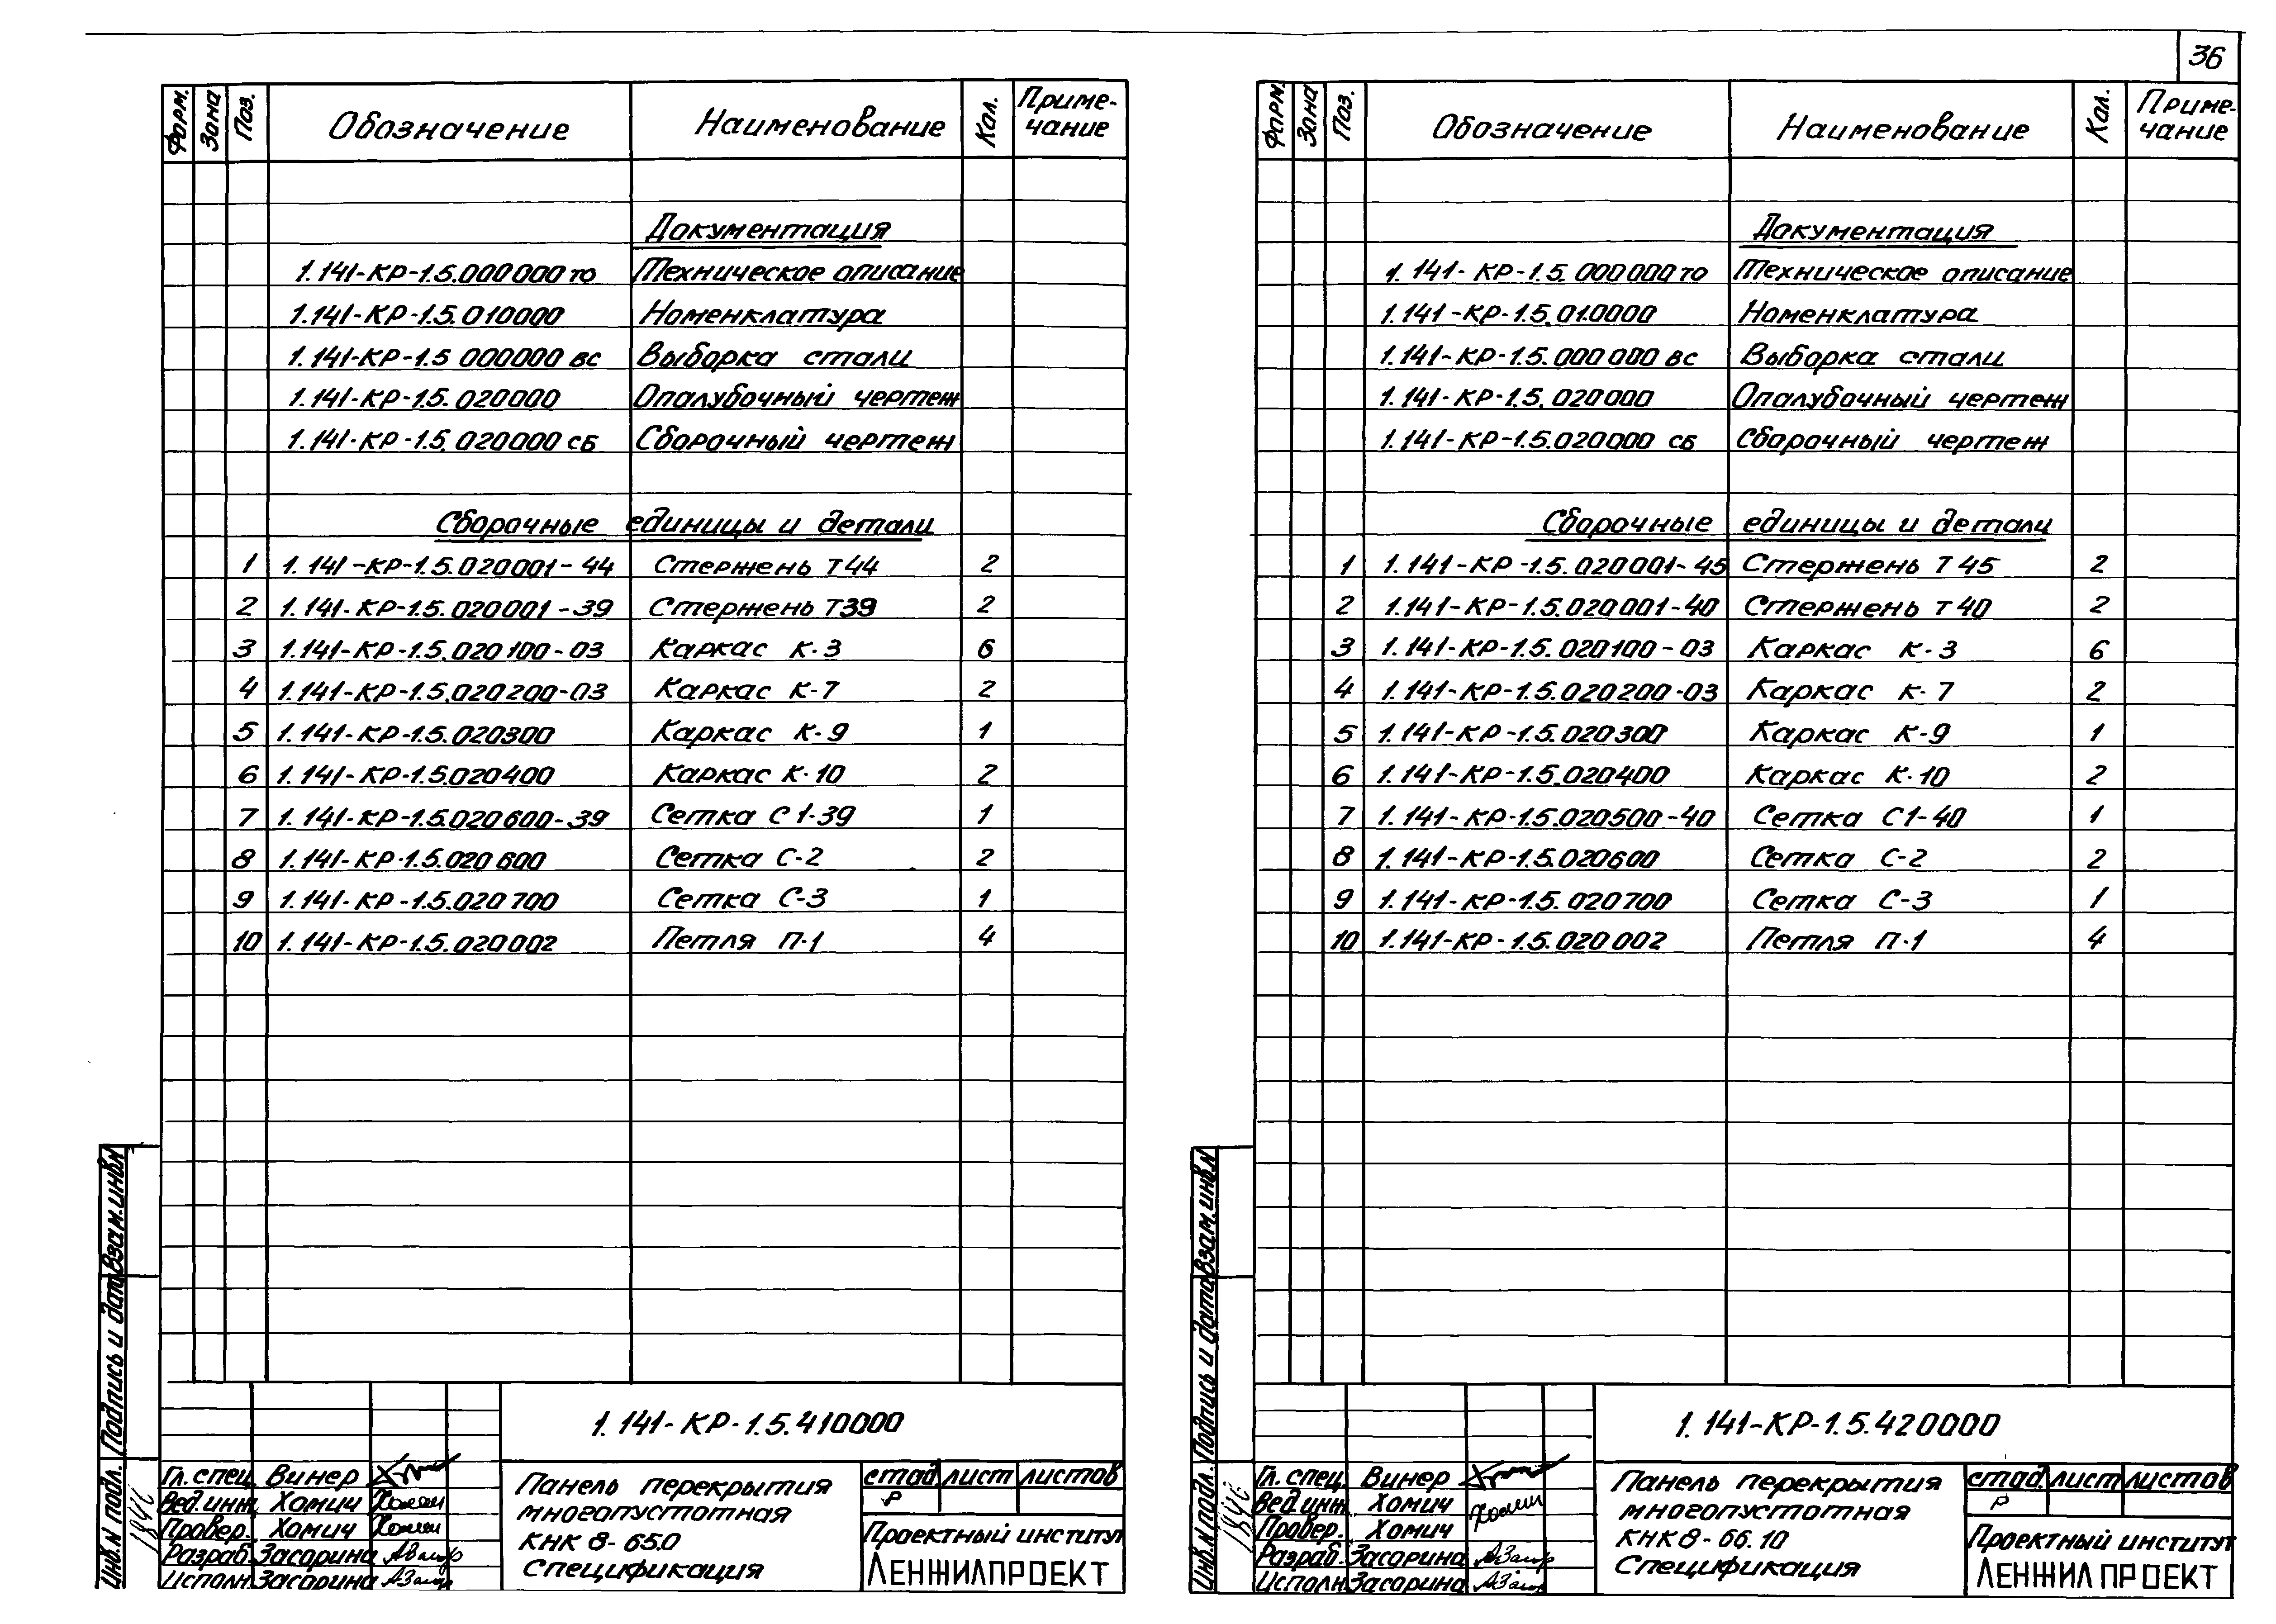 36
Форм. Зона Поз. Обозначение Наименование Кол. Приме-
чание
Документация
1.141-КР-1.5.000000 то Техническое описание
1.141-КР-1.5.010000 Номенклатура
1.141-КР-1.5 000000 вс Выборка стали
1.141-КР-1.5.020000 Опалубочный чертеж
1.141-КР-1.5.020000 сб Сборочный чертеж
Сборочные единицы и детали
1 1.141-КР-1.5.020001-44 Стержень Т44 2
2 1.141-КР-1.5.020001-39 Стержень Т39 2
3 1.141-КР-1.5.020100-03 Каркас К-3 6
4 1.141-КР-1.5.020200-03 Каркас К-7 2
5 1.141-КР-1.5.020300 Каркас К-9 1
6 1.141-КР-1.5.020400 Каркас К-10 2
7 1.141-КР-1.5.020600-39 Сетка С1-39 1
8 1.141-КР-1.5.020600 Сетка С-2 2
9 1.141-КР-1.5.020700 Сетка С-3 1
10 1.141-КР-1.5.020002 Петля П-1 4
Взам.инв.N
Подпись и дата
Инв.N подл.
1.141-КР-1.5.410000
Гл.спец. Винер
Вед.инж. Хомич
Провер. Хомич
Разраб. Засорина
Исполн. Засорина
Панель перекрытия
многопустотная
КНК 8-65.0
Спецификация
стад. лист листов
Р
Проектный институт
ЛЕНЖИЛПРОЕКТ
Форм. Зона Поз. Обозначение Наименование Кол. Приме-
чание
Документация
1.141-КР-1.5.000000 то Техническое описание
1.141-КР-1.5.010000 Номенклатура
1.141-КР-1.5.000000 вс Выборка стали
1.141-КР-1.5.020000 Опалубочный чертеж
1.141-КР-1.5.020000 сб Сборочный чертеж
Сборочные единицы и детали
1 1.141-КР-1.5.020001-45 Стержень Т45 2
2 1.141-КР-1.5.020001-40 Стержень Т40 2
3 1.141-КР-1.5.020100-03 Каркас К-3 6
4 1.141-КР-1.5.020200-03 Каркас К-7 2
5 1.141-КР-1.5.020300 Каркас К-9 1
6 1.141-КР-1.5.020400 Каркас К-10 2
7 1.141-КР-1.5.020500-40 Сетка С1-40 1
8 1.141-КР-1.5.020600 Сетка С-2 2
9 1.141-КР-1.5.020700 Сетка С-3 1
10 1.141-КР-1.5.020002 Петля П-1 4
Взам.инв.N
Подпись и дата
Инв.N подл.
1.141-КР-1.5.420000
Гл.спец. Винер
Вед.инж. Хомич
Провер. Хомич
Разраб. Засорина
Исполн. Засорина
Панель перекрытия
многопустотная
КНК 8-66.10
Спецификация
стад. лист листов
Р
Проектный институт
ЛЕНЖИЛПРОЕКТ